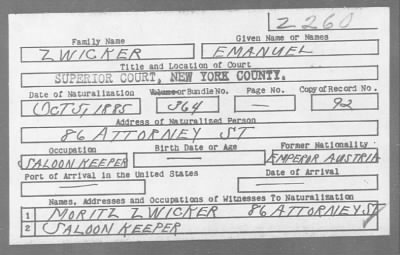 Z 260
Family Name Given Name or Names
ZWICKER EMANUEL
Title and Location of Court
SUPERIOR COURT, NEW YORK COUNTY.
Date of Naturalization Volume or Bundle No. Page No. Copy of Record No.
OCT 5, 1885 364 — 92
Address of Naturalized Person
86 ATTORNEY ST
Occupation Birth Date or Age Former Nationality
SALOON KEEPER — EMPEROR AUSTRIA
Port of Arrival in the United States Date of Arrival
— —
Names, Addresses and Occupations of Witnesses To Naturalization
1 MORITZ ZWICKER 86 ATTORNEY ST
2 SALOON KEEPER